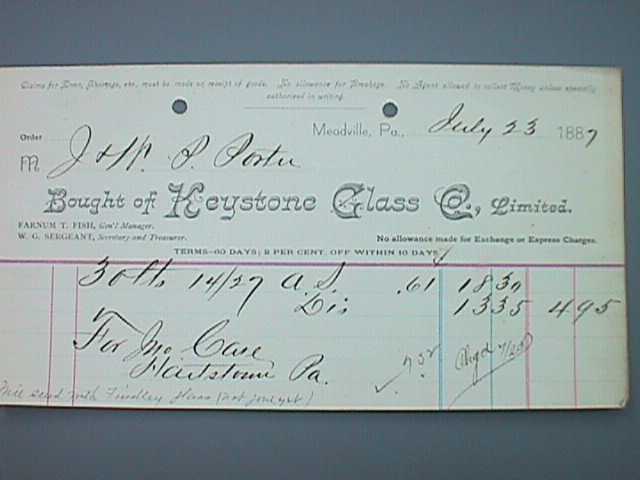 Claims for Error, Shortage, etc., must be made on receipt of goods. No allowance for Breakage. No Agent allowed to collect Money unless specially
authorized in writing.
Meadville, Pa., July 23 1887
Order
M J & W. P. Porter
Bought of Keystone Glass Co., Limited.
FARNUM T. FISH, Gen'l Manager.
W. G. SERGEANT, Secretary and Treasurer.
No allowance made for Exchange or Express Charges.
TERMS—60 DAYS; 2 PER CENT. OFF WITHIN 10 DAYS
30 lts 14/27 A. S. .61 18 30
Dis 13 35 4 95
For Jno Case
Hartstown Pa.
7/25
will send with Findley Glass (not yet)